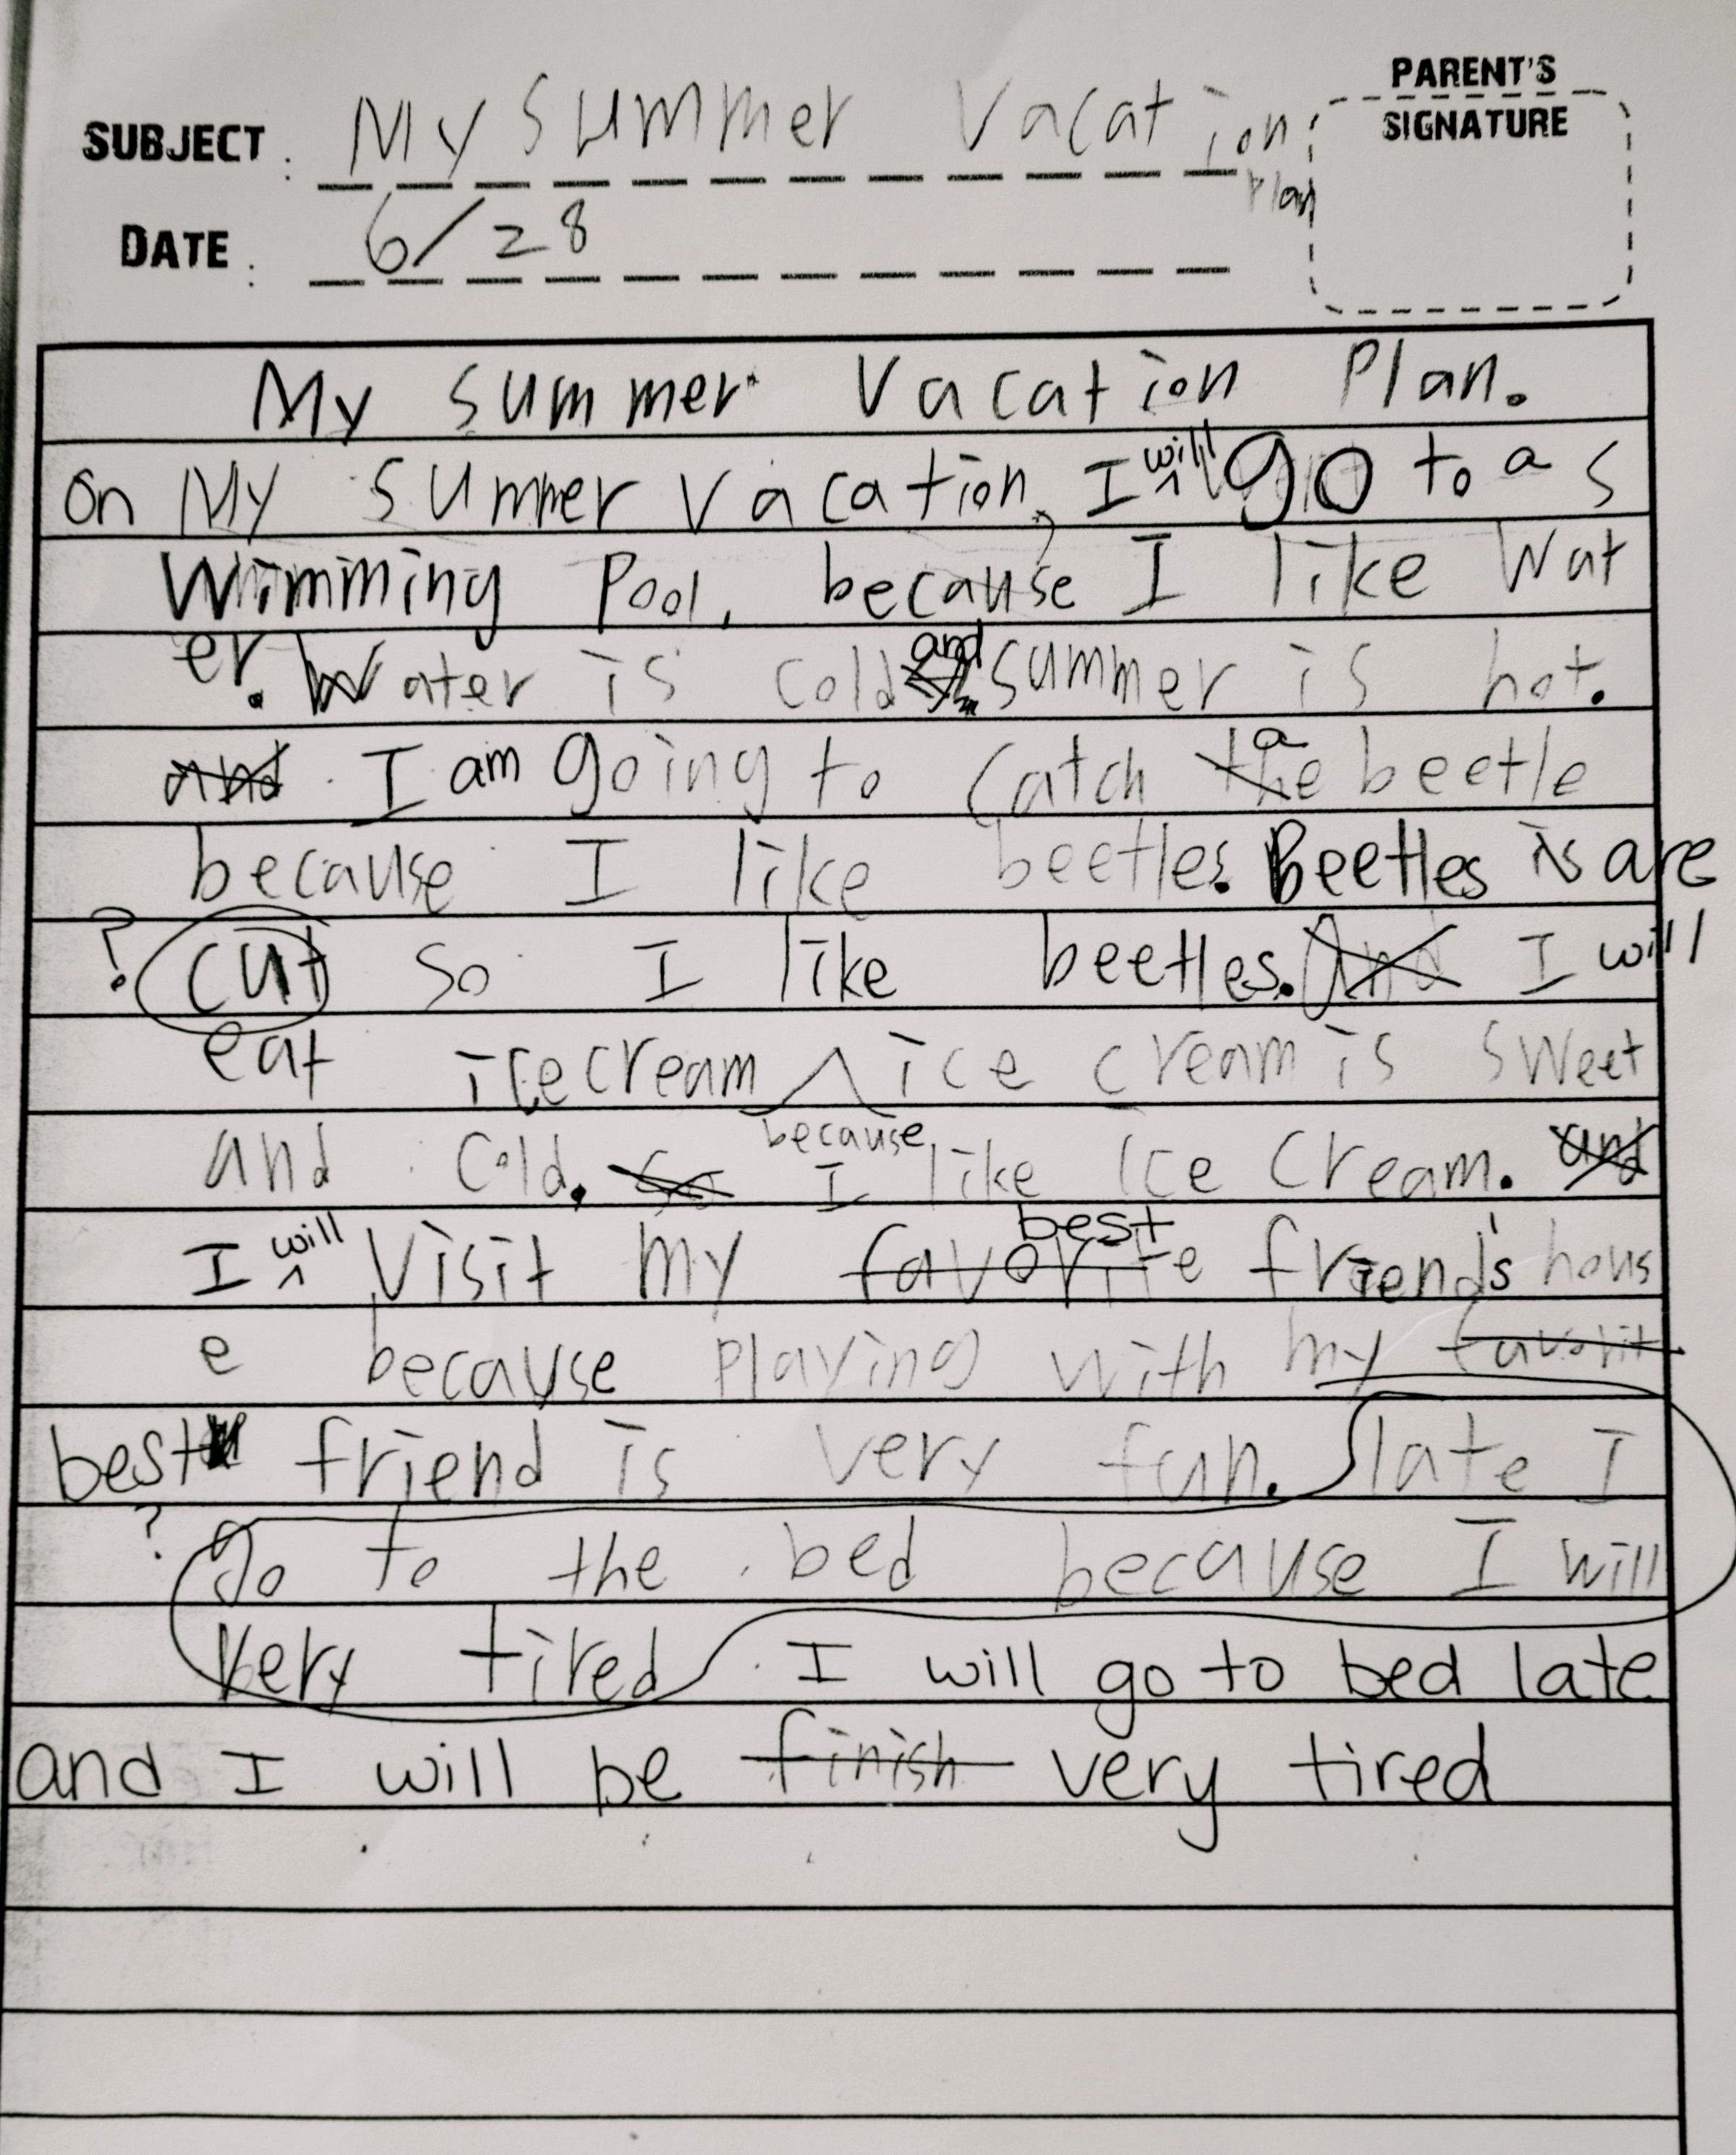 PARENT'S
SIGNATURE
SUBJECT : My Summer Vacation
Plan
DATE : 6/28
My summer Vacation Plan.
on My summer vacation, I will go to a s
Wimming Pool, because I like Wat
er. Water is cold and summer is hot.
and I am going to catch the a beetle
because I like beetles. Beetles is are
? cut so I like beetles. And I will
eat icecream ice cream is sweet
and cold. So because I like Ice Cream. and
I will Visit my favorite best friend's hous
e because playing with my favorit
best friend is very fun. late I
? go to the bed because I will
very tired I will go to bed late
and I will be finish very tired